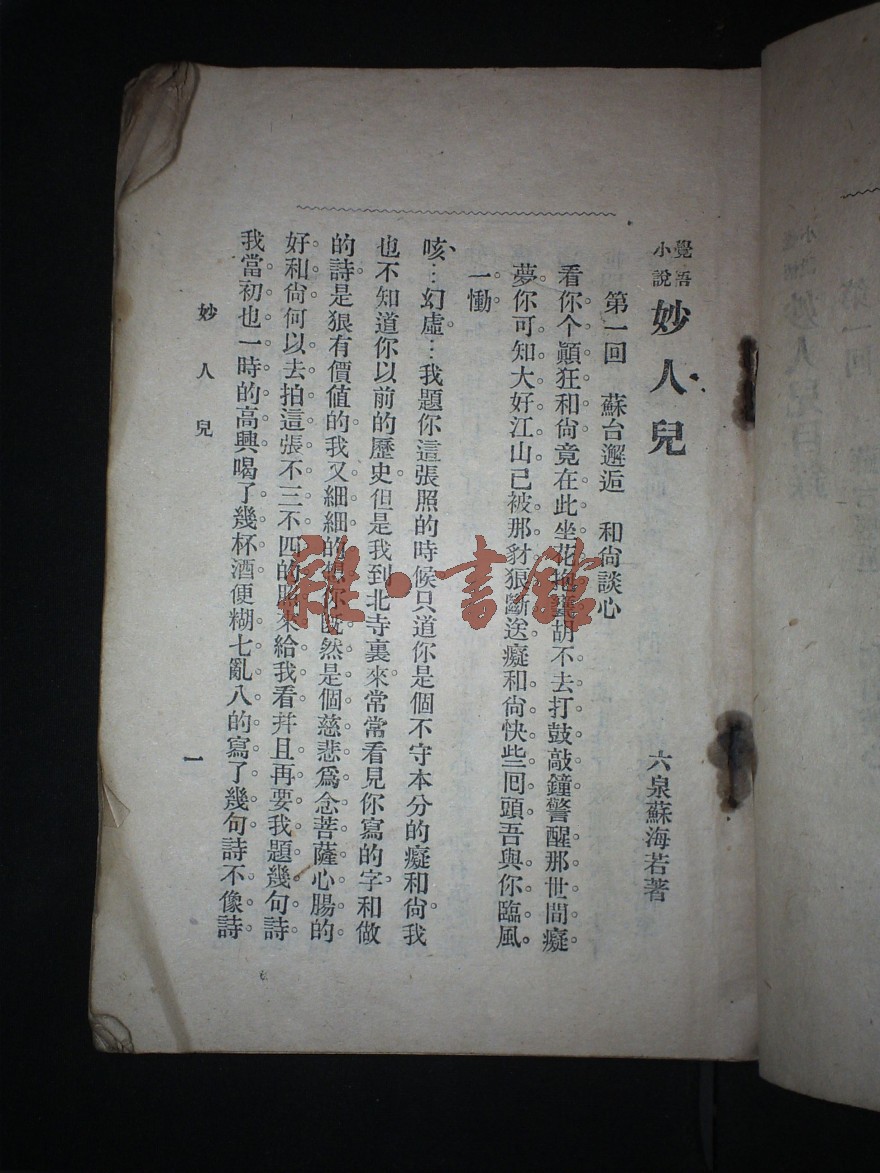 覺悟小說 妙人兒 六泉蘇海若著
第一回 蘇台邂逅 和尙談心
看你个顚狂和尙竟在此坐花地裏胡不去打鼓敲鐘警醒那世間癡
夢你可知大好江山已被那豺狼斷送癡和尙快些囘頭吾與你臨風。
一慟
咳…幻虛…我題你這張照的時候只道你是個不守本分的癡和尙。我
也不知道你以前的歷史但是我到北寺裏來常常看見你寫的字和做
的詩是狠有價值的我又細細的想你旣然是個慈悲爲念菩薩心腸的
好和尙何以去拍這張不三不四的照來給我看幷且再要我題幾句詩
我當初也一時的高興喝了幾杯酒便糊七亂八的寫了幾句詩不像詩
妙人兒 一
雜·書館